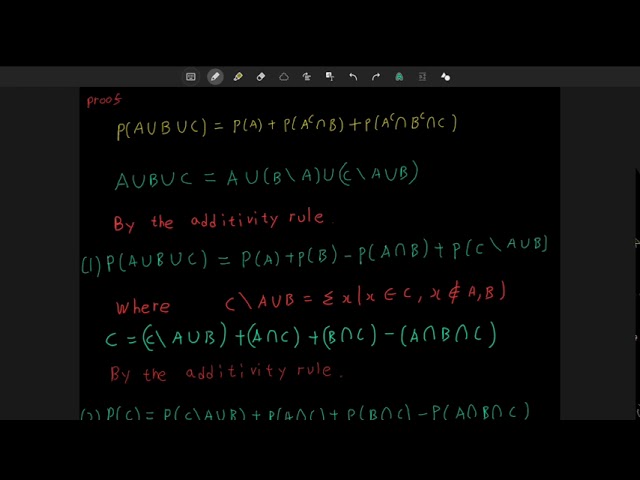 proof
P(A∪B∪C) = P(A) + P(Aᶜ∩B) + P(Aᶜ∩Bᶜ∩C)
A∪B∪C = A∪(B\A)∪(C\A∪B)
By the additivity rule.
(1) P(A∪B∪C) = P(A) + P(B) - P(A∩B) + P[C\A∪B]
Where C\A∪B = {x|x∈C, x∉A,B)
C = (C\A∪B) + (A∩C) + (B∩C) - (A∩B∩C)
By the additivity rule.
(2) P(C) = P(C\A∪B) + P(A∩C) + P(B∩C) - P(A∩B∩C)